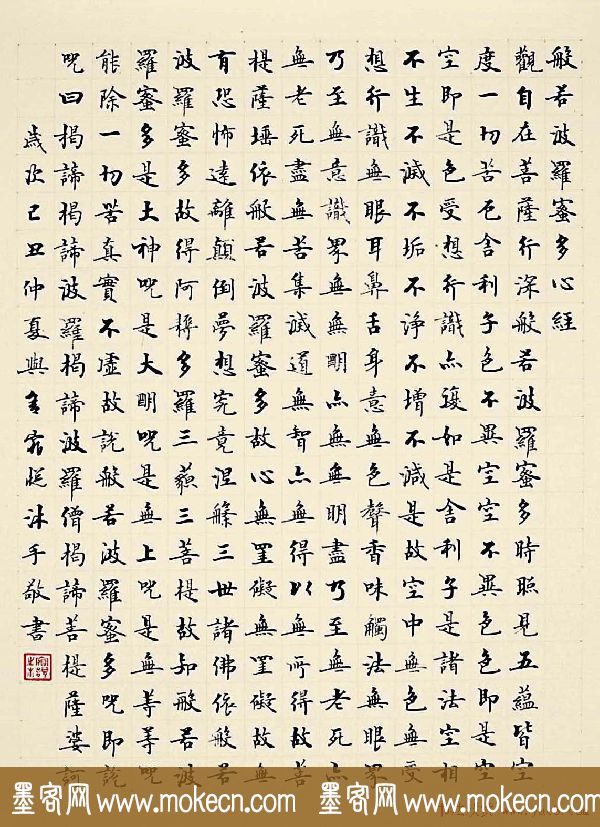 般若波羅蜜多心經
觀自在菩薩行深般若波羅蜜多時照見五蘊皆空
度一切苦厄舍利子色不異空空不異色色即是空
空即是色受想行識亦復如是舍利子是諸法空相
不生不滅不垢不淨不增不減是故空中無色無受
想行識無眼耳鼻舌身意無色聲香味觸法無眼界
乃至無意識界無無明亦無無明盡乃至無老死亦
無老死盡無苦集滅道無智亦無得以無所得故菩
提薩埵依般若波羅蜜多故心無罣礙無罣礙故無
有恐怖遠離顛倒夢想究竟涅槃三世諸佛依般若
波羅蜜多故得阿耨多羅三藐三菩提故知般若波
羅蜜多是大神咒是大明咒是無上咒是無等等咒
能除一切苦真實不虛故說般若波羅蜜多咒即說
咒曰揭諦揭諦波羅揭諦波羅僧揭諦菩提薩婆訶
歲次己丑仲夏與沐手敬書
墨客网www.mokecn.com 墨客网www.mokecn.com